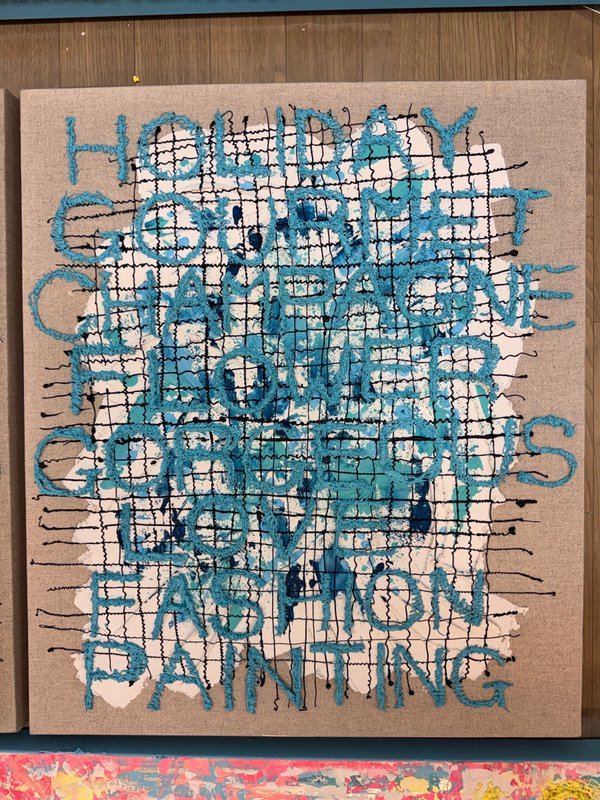 HOLIDAY
GOURMET
CHAMPAGNE
FLOWER
GORGEOUS
LOVE
FASHION
PAINTING